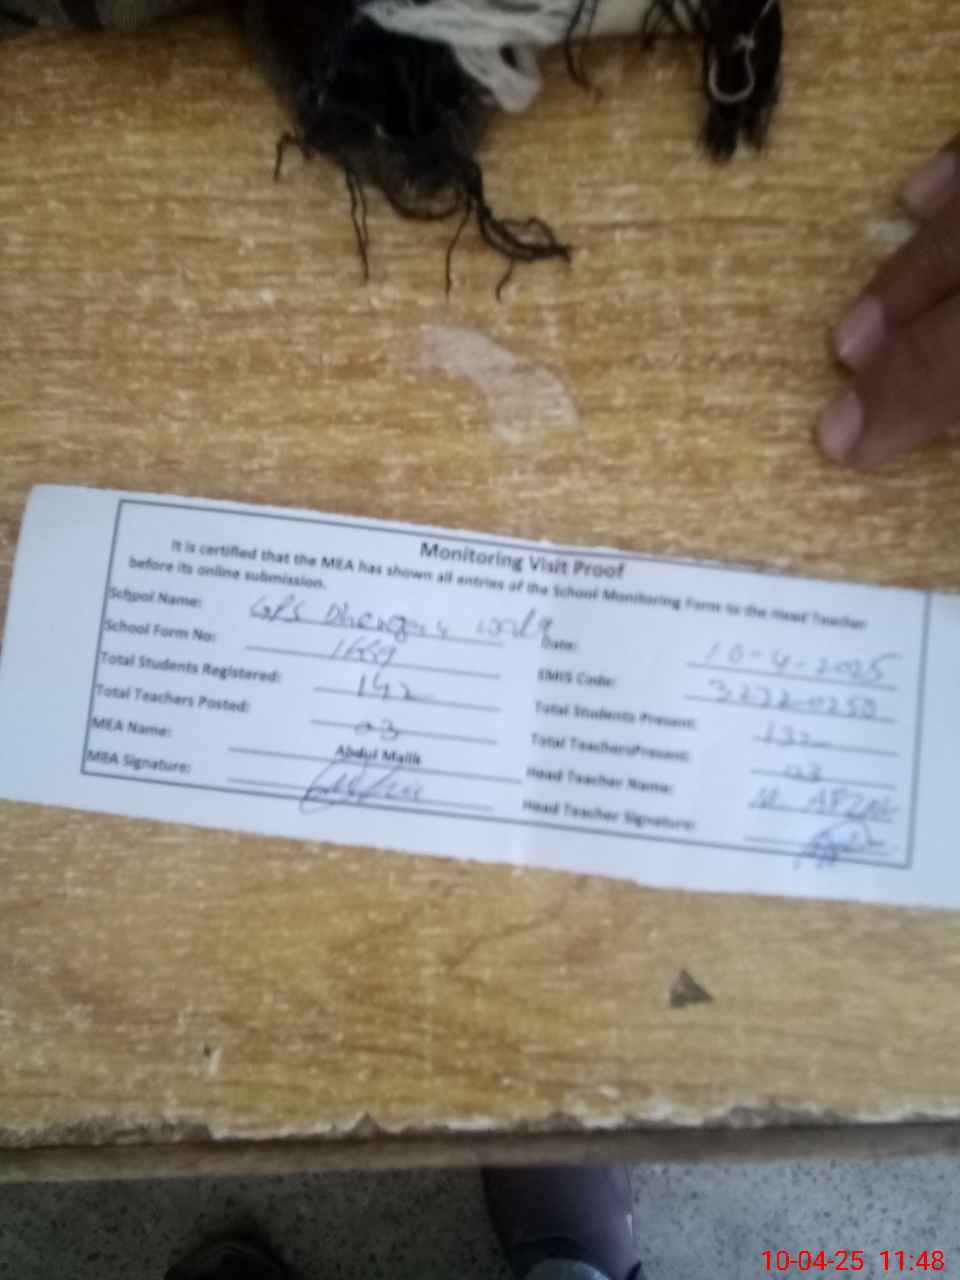 Monitoring Visit Proof
It is certified that the MEA has shown all entries of the School Monitoring Form to the Head Teacher
before its online submission.
School Name: GPS Date: 10-4-2025
School Form No: EMIS Code: 32320250
Total Students Registered: 142 Total Students Present: 132
Total Teachers Posted: 03 Total TeachersPresent: 03
MEA Name: Abdul Malik Head Teacher Name: M. AFZAL
MEA Signature: Head Teacher Signature:
10-04-25 11:48